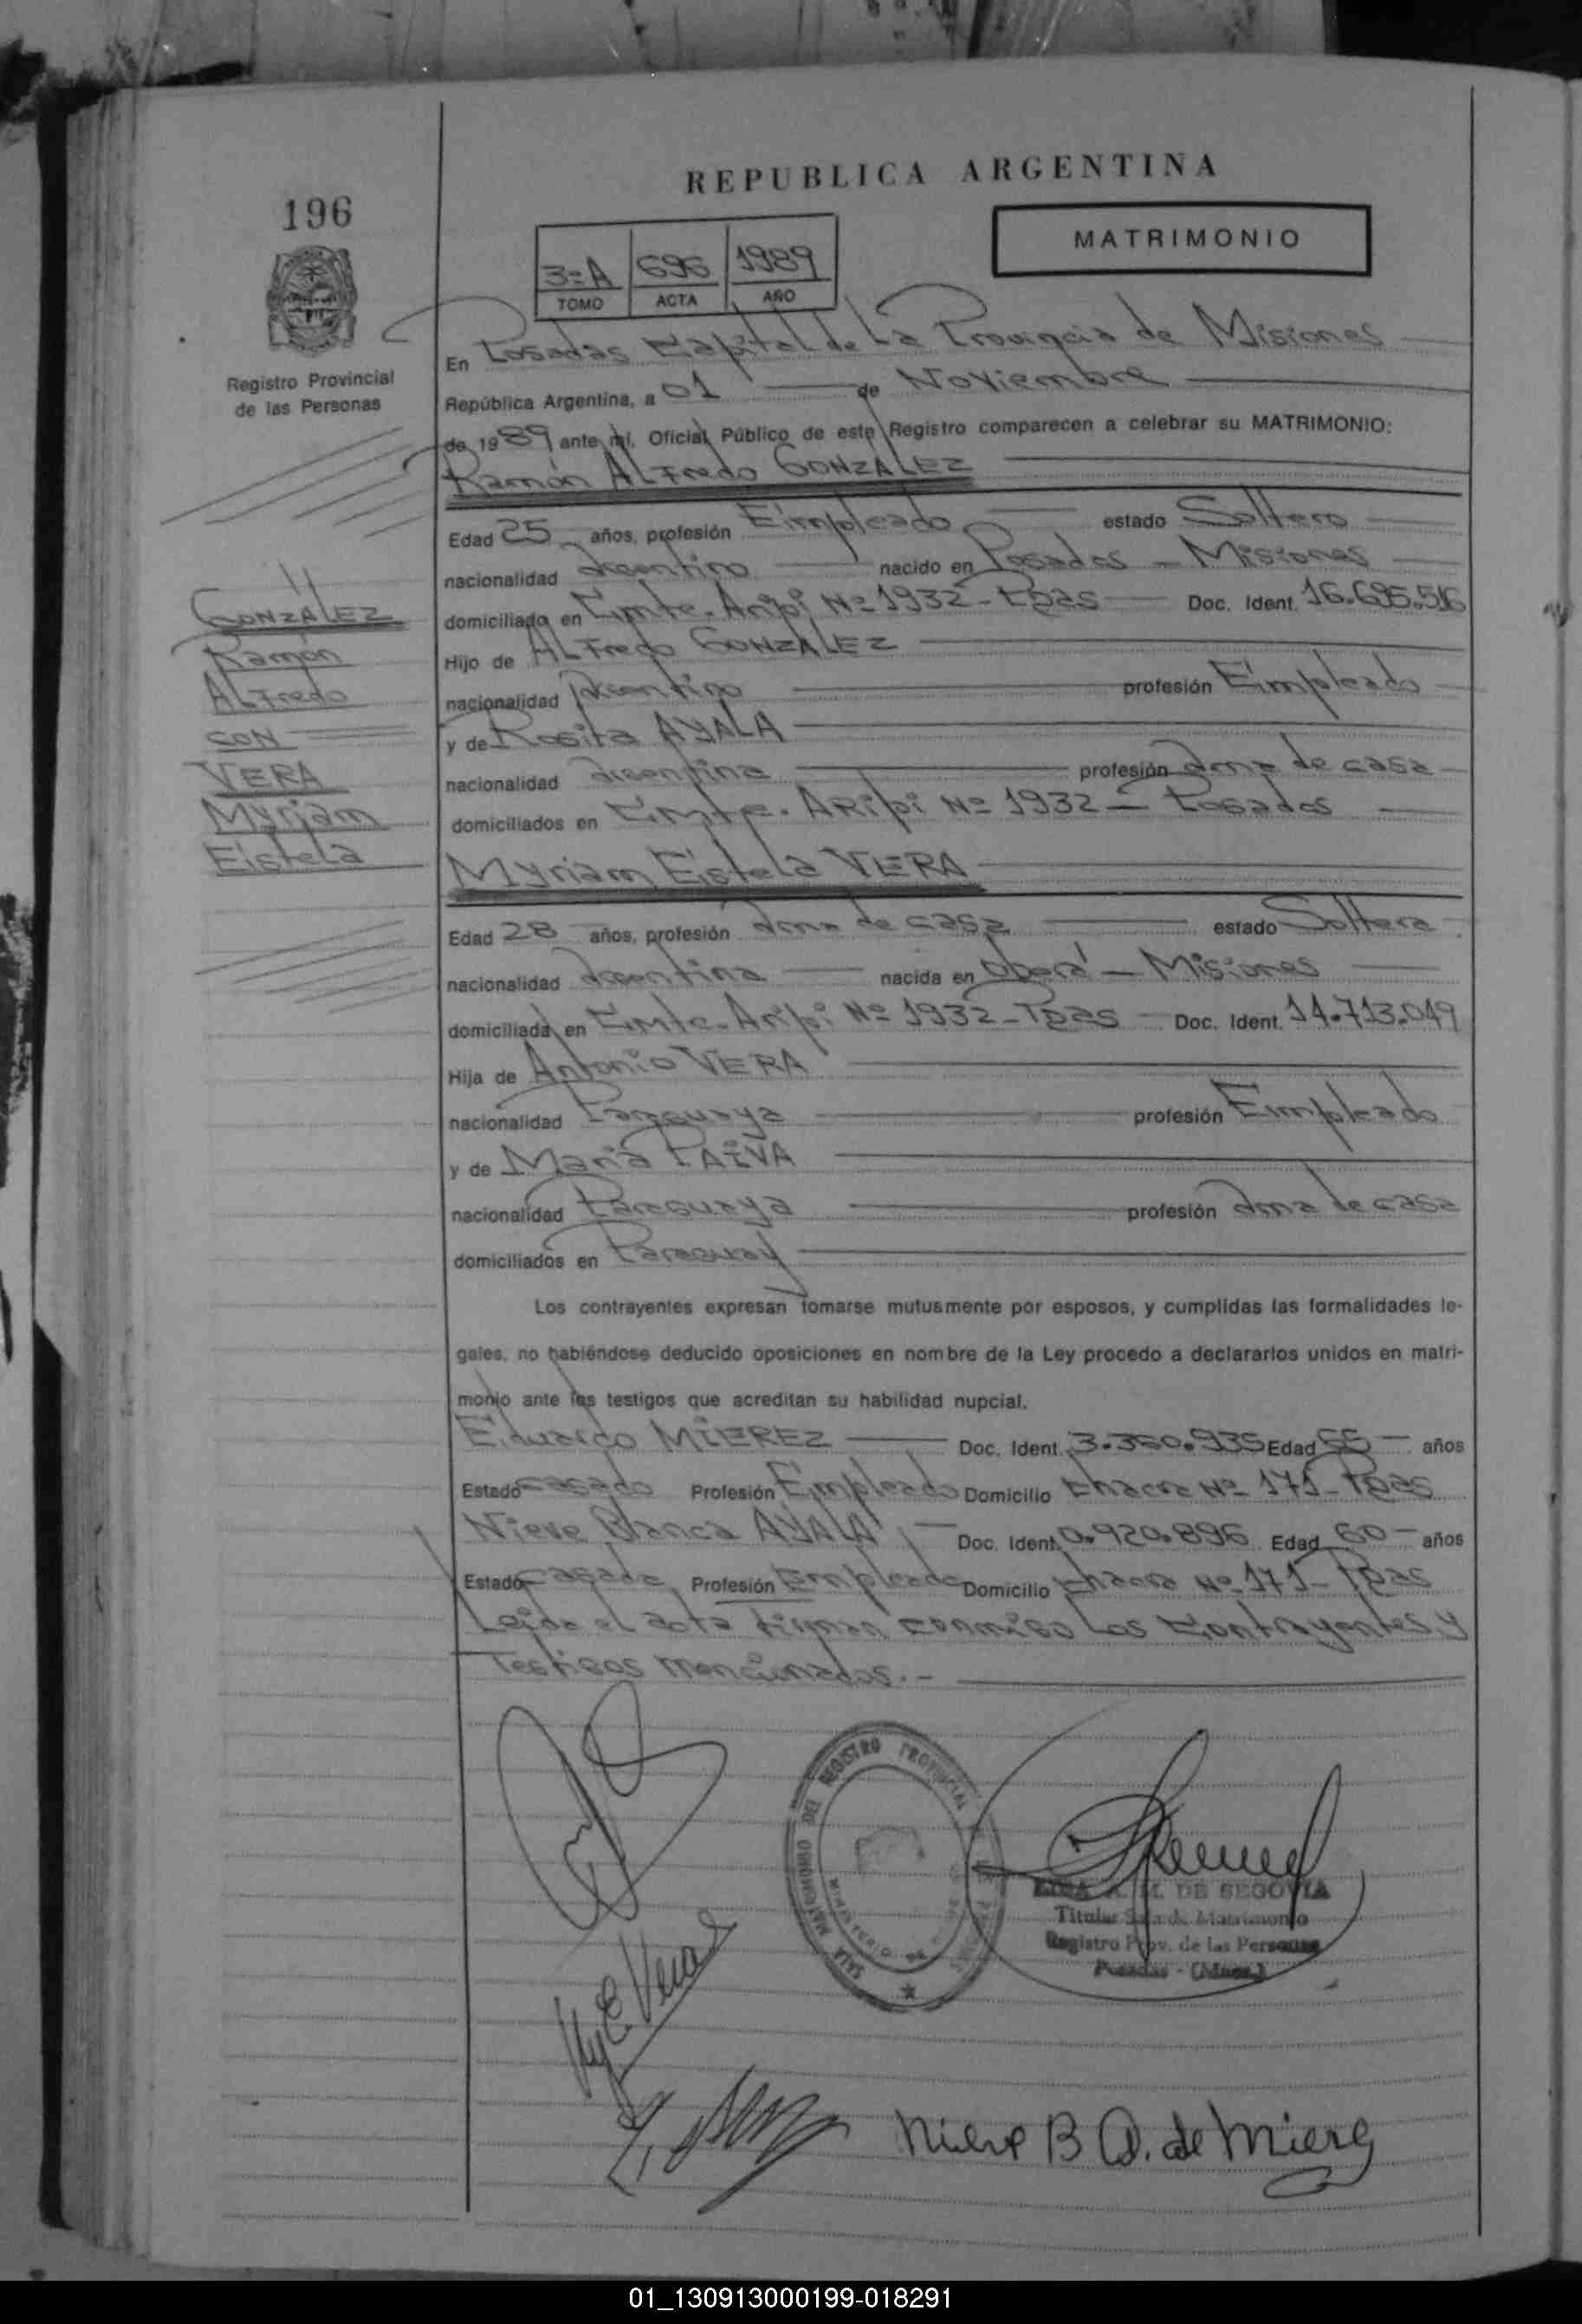 REPUBLICA ARGENTINA
196
MATRIMONIO
3=A 696 1989
TOMO ACTA AÑO
Registro Provincial
de las Personas
En Posadas Capital de La Provincia de Misiones
República Argentina, a 01 de Noviembre
de 1989 ante mí, Oficial Público de este Registro comparecen a celebrar su MATRIMONIO:
Ramón ALFredo GONZALEZ
Edad 25 años, profesión Empleado estado Soltero
nacionalidad Argentino nacido en Posadas - Misiones
domiciliado en Cmte. Aripi Nº 1932 - Pdas Doc. Ident. 16.695.516
Hijo de ALFredo GONZALEZ
nacionalidad Argentino profesión Empleado
y de Rosita AYALA
nacionalidad Argentina profesión Ama de casa
domiciliados en Cmte. Aripi Nº 1932 - Posadas
GONZÁLEZ
Ramón
ALFredo
CON
VERA
Myriam
Estela
Myriam Estela VERA
Edad 28 años, profesión Ama de casa estado Soltera
nacionalidad Argentina nacida en Oberá - Misiones
domiciliada en Cmte. Aripi Nº 1932 - Pdas Doc. Ident. 14.713.049
Hija de Antonio VERA
nacionalidad Paraguaya profesión Empleado
y de Maria PAIVA
nacionalidad Paraguaya profesión Ama de casa
domiciliados en Paraguay
Los contrayentes expresan tomarse mutuamente por esposos, y cumplidas las formalidades le-
gales, no habiéndose deducido oposiciones en nombre de la Ley procedo a declararlos unidos en matri-
monio ante los testigos que acreditan su habilidad nupcial.
Eduardo MIEREZ Doc. Ident. 3.350.935 Edad años
Estado casado Profesión Empleado Domicilio Chacra Nº 171 - Pdas
Nieve Blanca AYALA Doc. Ident. 0.920.896 Edad 60 años
Estado casada Profesión Empleada Domicilio Chacra Nº 171 - Pdas
Leida el acta Firman conmigo Los Contrayentes y
Testigos mencionados.-
SALA MATRIMONIO DEL REGISTRO PROVINCIAL DE LAS PERSONAS
MINISTERIO DE
A. M. DE SEGOVIA
Titular Sala de Matrimonio
Registro Prov. de las Personas
Posadas - (Mnes.)
My E Vera
Nieve B A. de Mierez
01_130913000199-018291